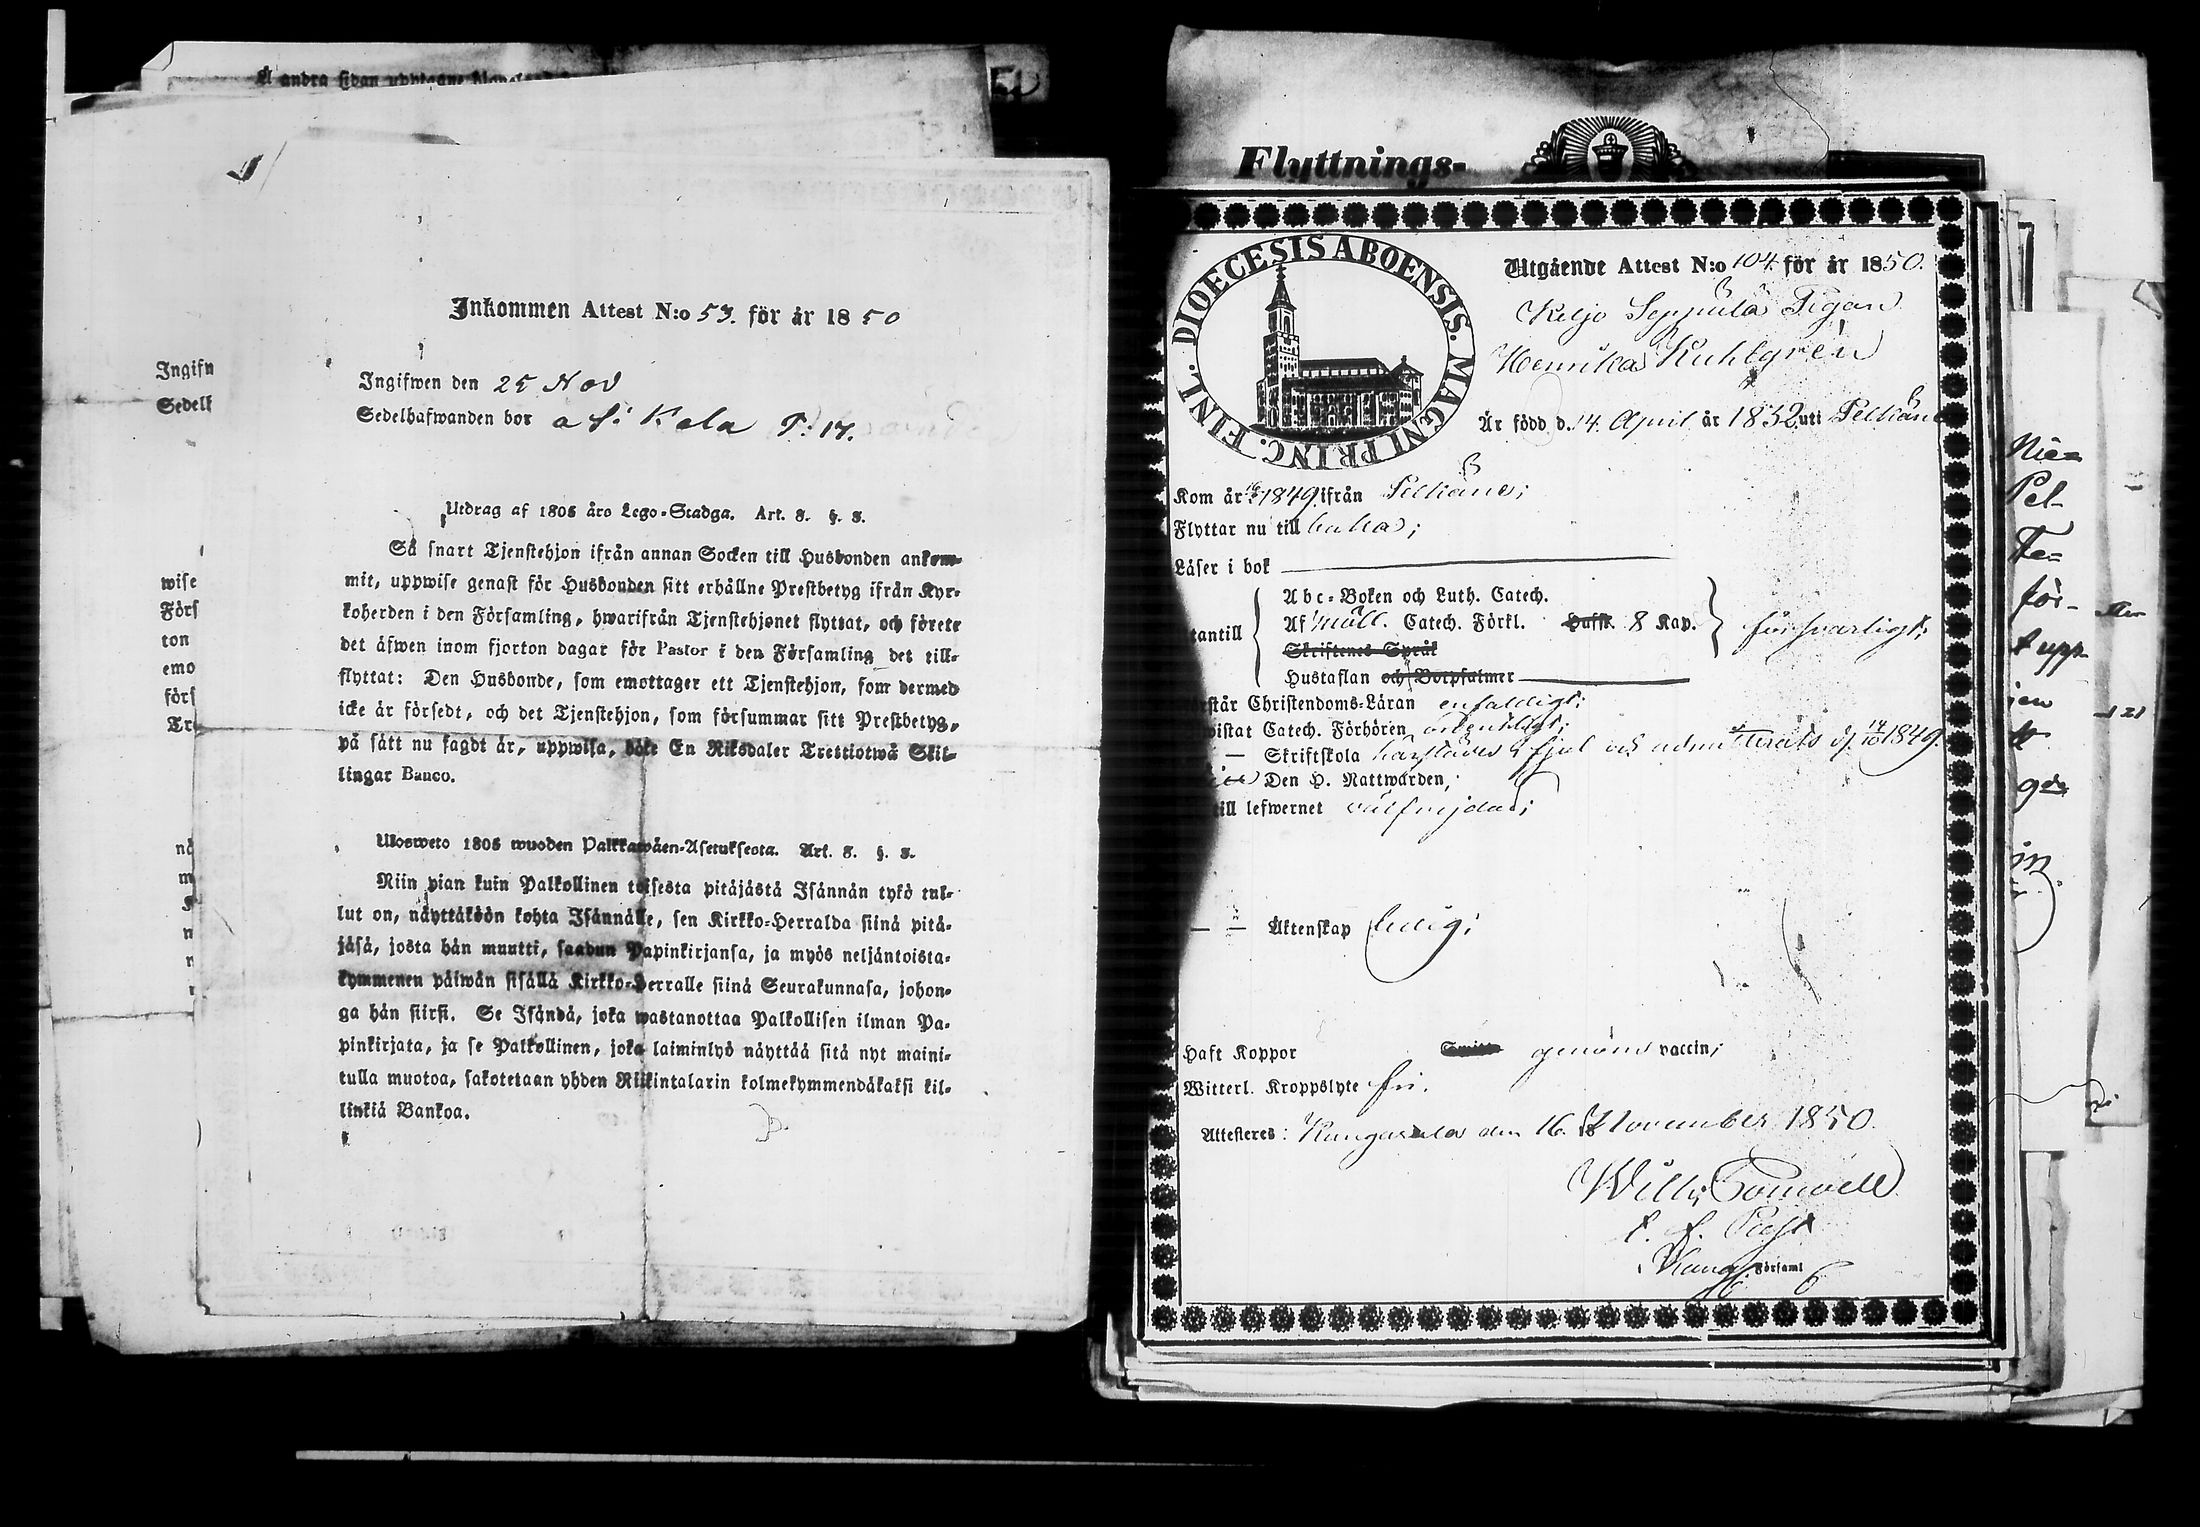 Å andra sidan
Inkommen Attest N:o 53. för år 1850
Ingifwen den 25 Nov
Sedelhafwanden bor a f: Kela P: 17.
Utdrag af 1805 års Lego-Stadga. Art. 8. §. 3.
Så snart Tjenstehjon ifrån annan Socken till Husbonden ankom-
mit, uppwise genast för Husbonden sitt erhållne Prestbetyg ifrån Kyr-
koherden i den Församling, hwarifrån Tjenstehjonet flyttat, och förete
det äfwen inom fjorton dagar för Pastor i den Församling det till-
flyttat: Den Husbonde, som emottager ett Tjenstehjon, som dermed
icke är försedt, och det Tjenstehjon, som försummar sitt Prestbetyg,
på sätt nu sagdt är, uppwisa, böte En Riksdaler Trettiotwå Skil-
lingar Banco.
Ulosweto 1805 wuoden Palkkawäen-Asetuksesta. Art. 8. §. 3.
Niin pian kuin Palkollinen toisesta pitäjästä Isännän tykö tul-
lut on, näyttäköön kohta Isännälle, sen Kirkko-Herralda siinä pitä-
jäsä, josta hän muutti, saadun Papinkirjansa, ja myös neljäntoista-
kymmenen päiwän sisällä Kirkko-Herralle siinä Seurakunnasa, johon-
ga hän siirsi. Se Isändä, joka wastanottaa Palkollisen ilman Pa-
pinkirjata, ja se Palkollinen, joka laiminlyö näyttää sitä nyt maini-
tulla muotoa, sakotetaan yhden Riikintalarin kolmekymmendäkaksi kil-
linkiä Bankoa.
Ingifw
Sedelh
wise
Förs
ton
emo
förs
Tre
Flyttnings-
DIOECESIS ABOENSIS. MAGNI PRINC. FINL.
Utgående Attest N:o 104 för år 1850.
Keljo Seppälä Pigan
Henrika Kuhlgrén
Är född d. 14. April år 1832 uti Pelkäne
Kom år 1849 ifrån Pelkäne;
Flyttar nu till baka;
Läser i bok
Abc-Boken och Luth. Catech.
Af Möll. Catech. Förkl. Haffk. 8 Kap.
tantill
försvarligt;
Skriftenes Språk
Hustaflan och Botpsalmer
står Christendoms-Läran enfaldigt;
wistat Catech. Förhören ordentligt;
— Skriftskola härstädes och admitterats d. 14/10 1849.
Den H. Nattwarden;
till lefwernet välfrejdad;
— — Äktenskap ledig;
Haft Koppor Smitto genom vaccin;
Witterl. Kroppslyte fri.
Attesteres: Kangasala den 16. November 1850.
Församl
Nie=
Pel-
Fe=
för-
t upp-